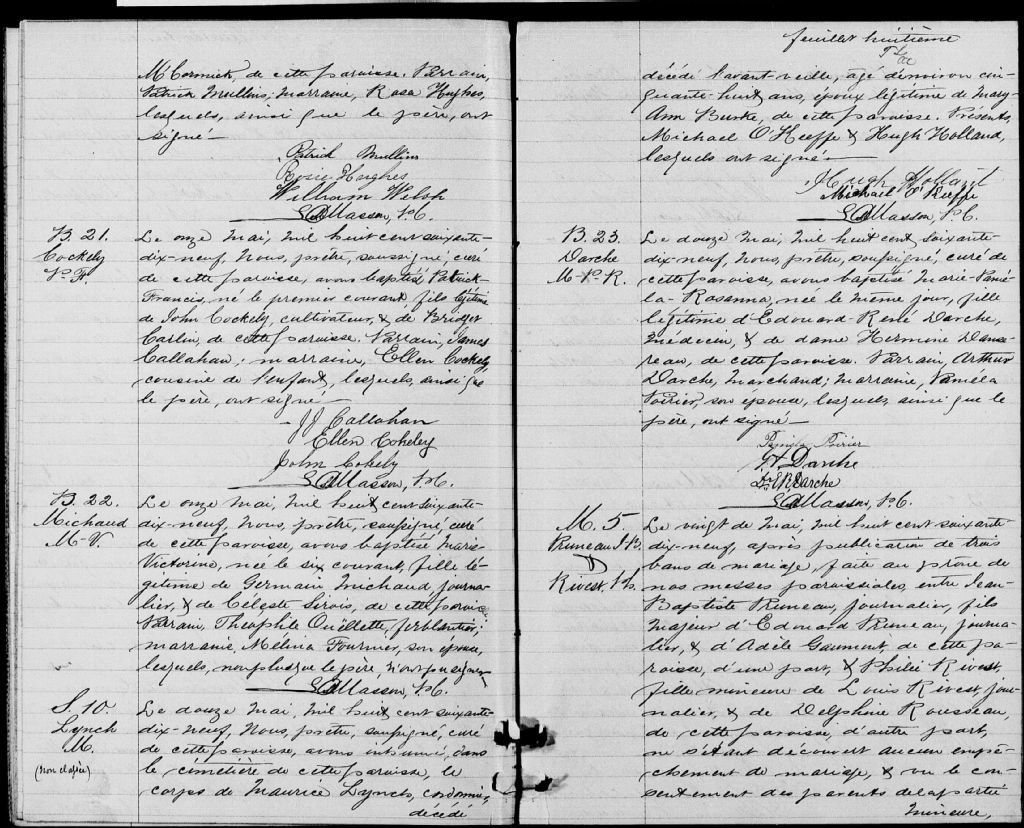 McCormick, de cette paroisse. Parrain,
Patrick Mullins, marraine, Rosa Hughes,
lesquels, ainsi que le père, ont
signé —
Patrick Mullins
Rosie Hughes
William Welsh
Masson, P.C.
B. 21.
Cockely
P. F.
Le onze mai, mil huit cent soixante-
dix-neuf, nous, prêtre, soussigné, curé
de cette paroisse, avons baptisé Patrick-
Francis, né le premier courant, fils légitime
de John Cockely, cultivateur, & de Bridget
Carlin, de cette paroisse. Parrain, James
Callahan; marraine, Ellen Cockely,
cousine de l'enfant, lesquels, ainsi que
le père, ont signé —
J J Callahan
Ellen Cokeley
John Cokely
Masson, P.C.
B. 22.
Michaud
M-V.
Le onze mai, mil huit cent soixante-
dix-neuf, nous, prêtre, soussigné, curé
de cette paroisse, avons baptisé Marie-
Victorine, née le six courant, fille lé-
gitime de Germain Michaud, journa-
lier, & de Céleste Sirois, de cette paroisse.
Parrain, Théophile Ouëllette, ferblantier;
marraine, Mélina Fournier, son épouse,
lesquels, non plus que le père, n'ont pu signer
Masson, P.C.
S. 10.
Lynch
M.
Le douze mai, mil huit cent soixante-
dix-neuf, nous, prêtre, soussigné, curé
de cette paroisse, avons inhumé, dans
le cimetière de cette paroisse, le
corps de Maurice Lynch, cordonnier,
décédé
feuillet huitième
décédé l'avant-veille, âgé d'environ cin-
quante-huit ans, époux légitime de Mary-
Ann Burke, de cette paroisse. Présents,
Michael O'Keeffe & Hugh Holland,
lesquels ont signé —
Hugh Holland
Michael O'Keeffe
Masson, P.C.
B. 23.
Darche
M-P-R.
Le douze mai, mil huit cent soixante-
dix-neuf, nous, prêtre, soussigné, curé de
cette paroisse, avons baptisé Marie-Pamé-
la-Rosanna, née le même jour, fille
légitime d'Edouard-René Darche,
médecin, & de dame Hermine Danse-
reau, de cette paroisse. Parrain, Arthur
Darche, marchand; marraine, Paméla
Poirier, son épouse, lesquels, ainsi que le
père, ont signé —
Paméla Poirier
Darche
Darche
Masson, P.C.
M. 5.
Pruneau J-B.
&
Rivest, Ph.
Le vingt de mai, mil huit cent soixante-
dix-neuf, après publication de trois
bans de mariage, faite au prône de
nos messes paroissiales, entre Jean-
Baptiste Pruneau, journalier, fils
majeur d'Edouard Pruneau, journa-
lier, & d'Adèle Gaumont, de cette pa-
roisse, d'une part, & Philée Rivest,
fille mineure de Louis Rivest, jour-
nalier, & de Delphine Rousseau,
de cette paroisse, d'autre part,
ne s'étant découvert aucun empê-
chement de mariage, & vu le con-
sentement des parents de la partie
mineure,